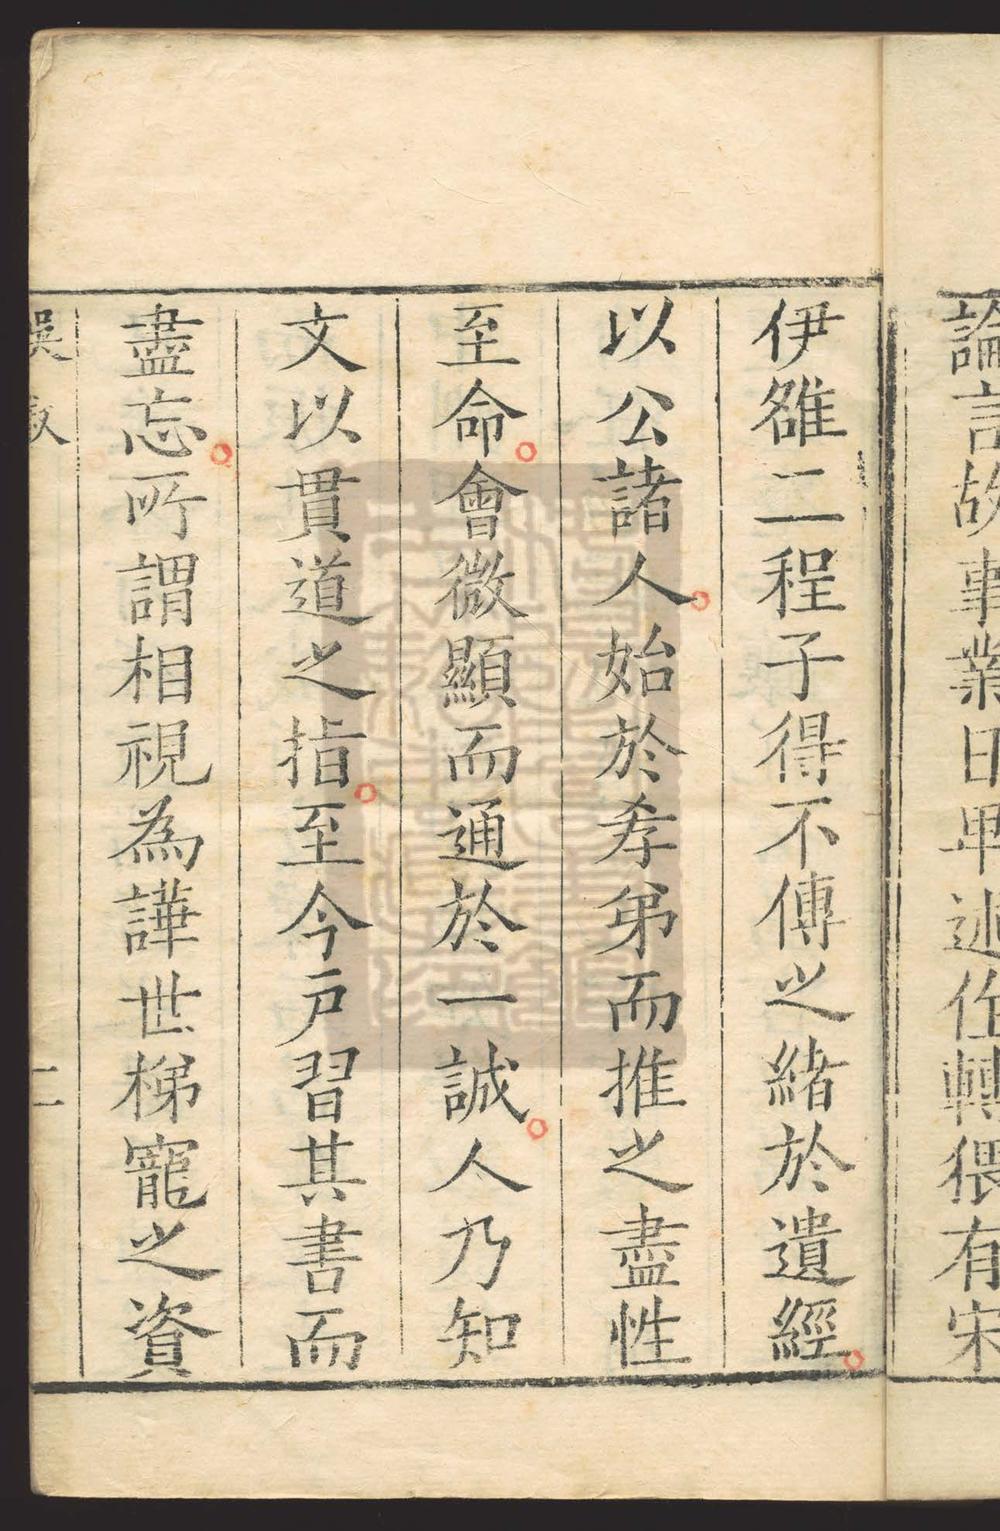 論言故事業日卑述作轉猥有宋
伊雒二程子得不傳之緒於遺經
以公諸人始於孝弟而推之盡性
至命會微顯而通於一誠人乃知
文以貫道之指至今戶習其書而
盡忘所謂相視為譁世梯寵之資
吳敘
二